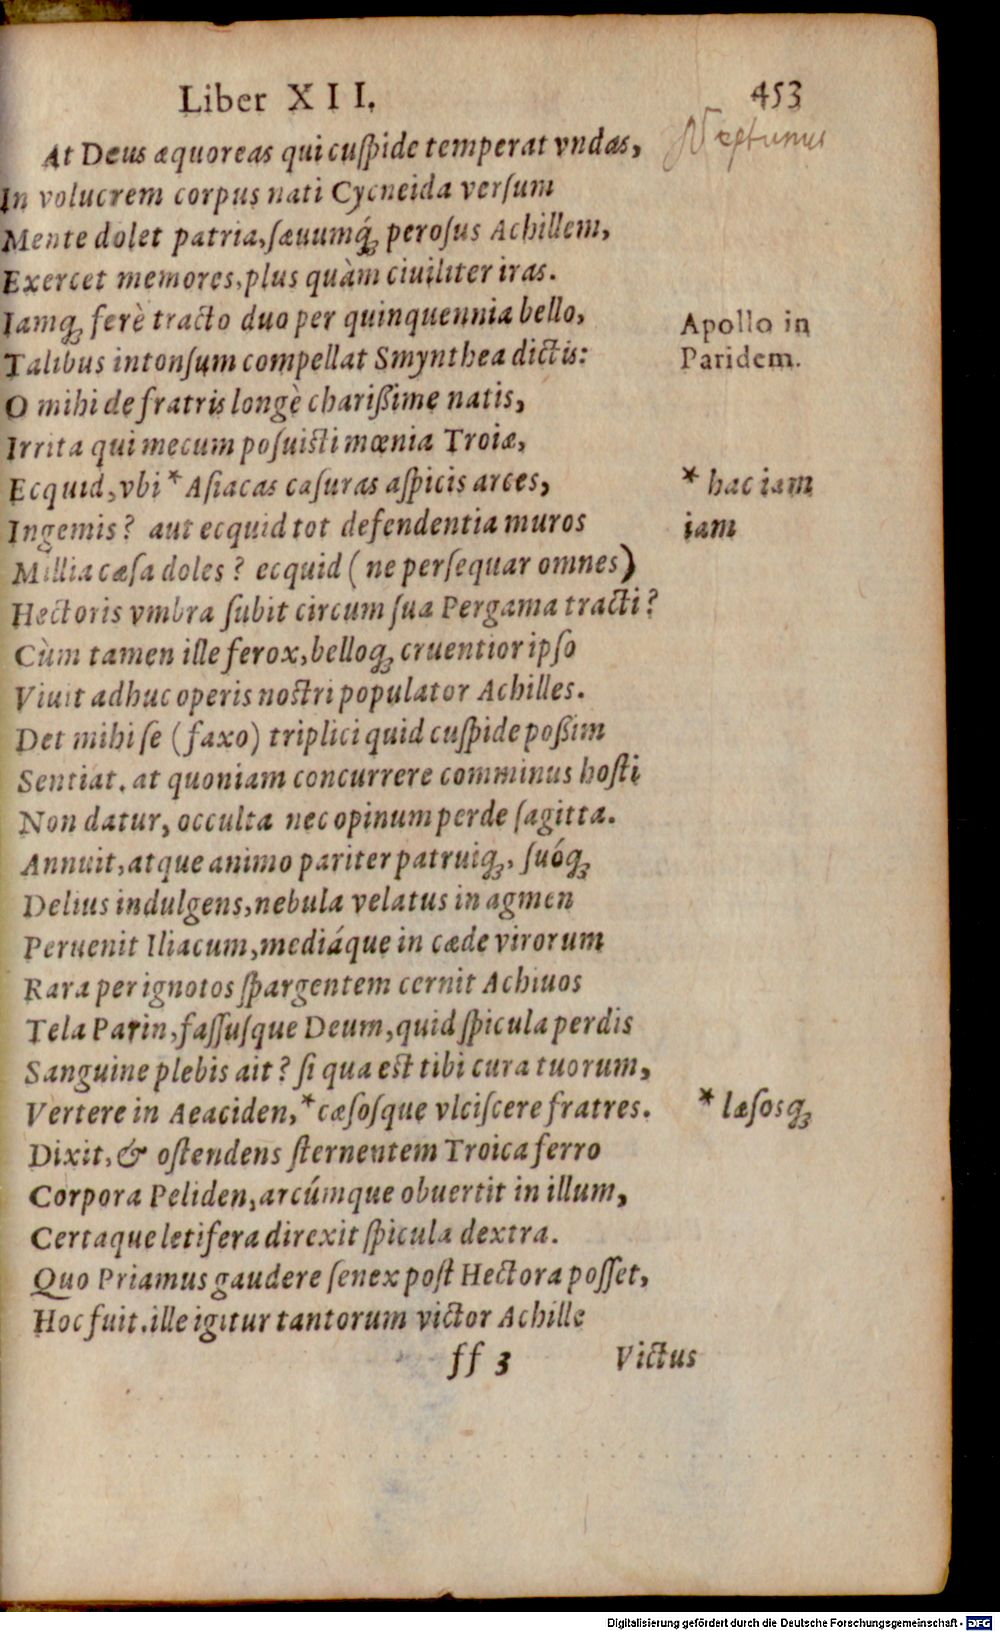 Liber XII.
453
At Deus æquoreas qui cuſpide temperat vndas,
Neptunus
In volucrem corpus nati Cycneida verſum
Mente dolet patria, ſæuumq́ꝫ peroſus Achillem,
Exercet memores, plus quàm ciuiliter iras.
Iamqꝫ ferè tracto duo per quinquennia bello,
Talibus intonſum compellat Smynthea dictis:
Apollo in
Paridem.
O mihi de fratris longè charißime natis,
Irrita qui mecum poſuisti mœnia Troiæ,
Ecquid, vbi * Aſiacas caſuras aſpicis arces,
* hac iam
iam
Ingemis? aut ecquid tot defendentia muros
Millia cæſa doles? ecquid (ne perſequar omnes)
Hectoris vmbra ſubit circum ſua Pergama tracti?
Cùm tamen ille ferox, belloqꝫ cruentior ipſo
Viuit adhuc operis nostri populator Achilles.
Det mihi ſe (faxo) triplici quid cuſpide poßim
Sentiat. at quoniam concurrere comminus hoſti
Non datur, occulta nec opinum perde ſagitta.
Annuit, atque animo pariter patruiqꝫ, ſuóqꝫ
Delius indulgens, nebula velatus in agmen
Peruenit Iliacum, mediáque in cæde virorum
Rara per ignotos ſpargentem cernit Achiuos
Tela Parin, faſſuſque Deum, quid ſpicula perdis
Sanguine plebis ait? ſi qua est tibi cura tuorum,
Vertere in Aeaciden, * cæſoſque vlciſcere fratres.
* læſosqꝫ
Dixit, & oſtendens ſternentem Troica ferro
Corpora Peliden, arcúmque obuertit in illum,
Certaque letifera direxit ſpicula dextra.
Quo Priamus gaudere ſenex poſt Hectora poſſet,
Hoc fuit. ille igitur tantorum victor Achille
ff 3
Victus
Digitalisierung gefördert durch die Deutsche Forschungsgemeinschaft - DFG